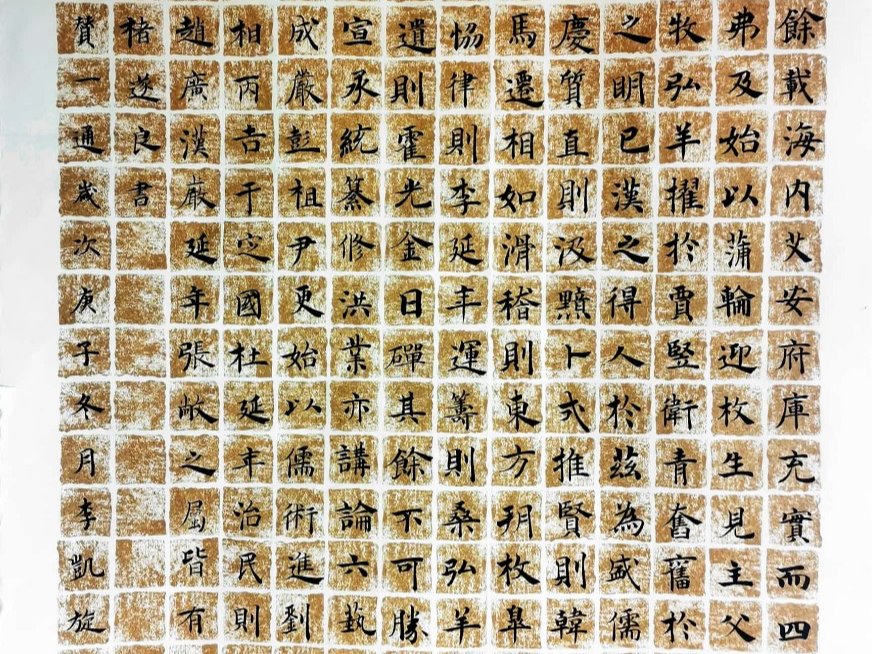 餘載海内艾安府庫充實而四
弗及始以蒲輪迎枚生見主父
牧弘羊擢於賈豎衛青奮舊於
之明已漢之得人於茲為盛儒
慶質直則汲黯卜式推賢則韓
馬遷相如滑稽則東方朔枚皐
恊律則李延年運籌則桑弘羊
遺則霍光金日磾其餘不可勝
宣承統纂修洪業亦講論六藝
成嚴彭祖尹更始以儒術進劉
相丙吉于定國杜延年治民則
趙廣漢嚴延年張敞之屬皆有
褚遂良書
贊一通歲次庚子冬月李凱旋